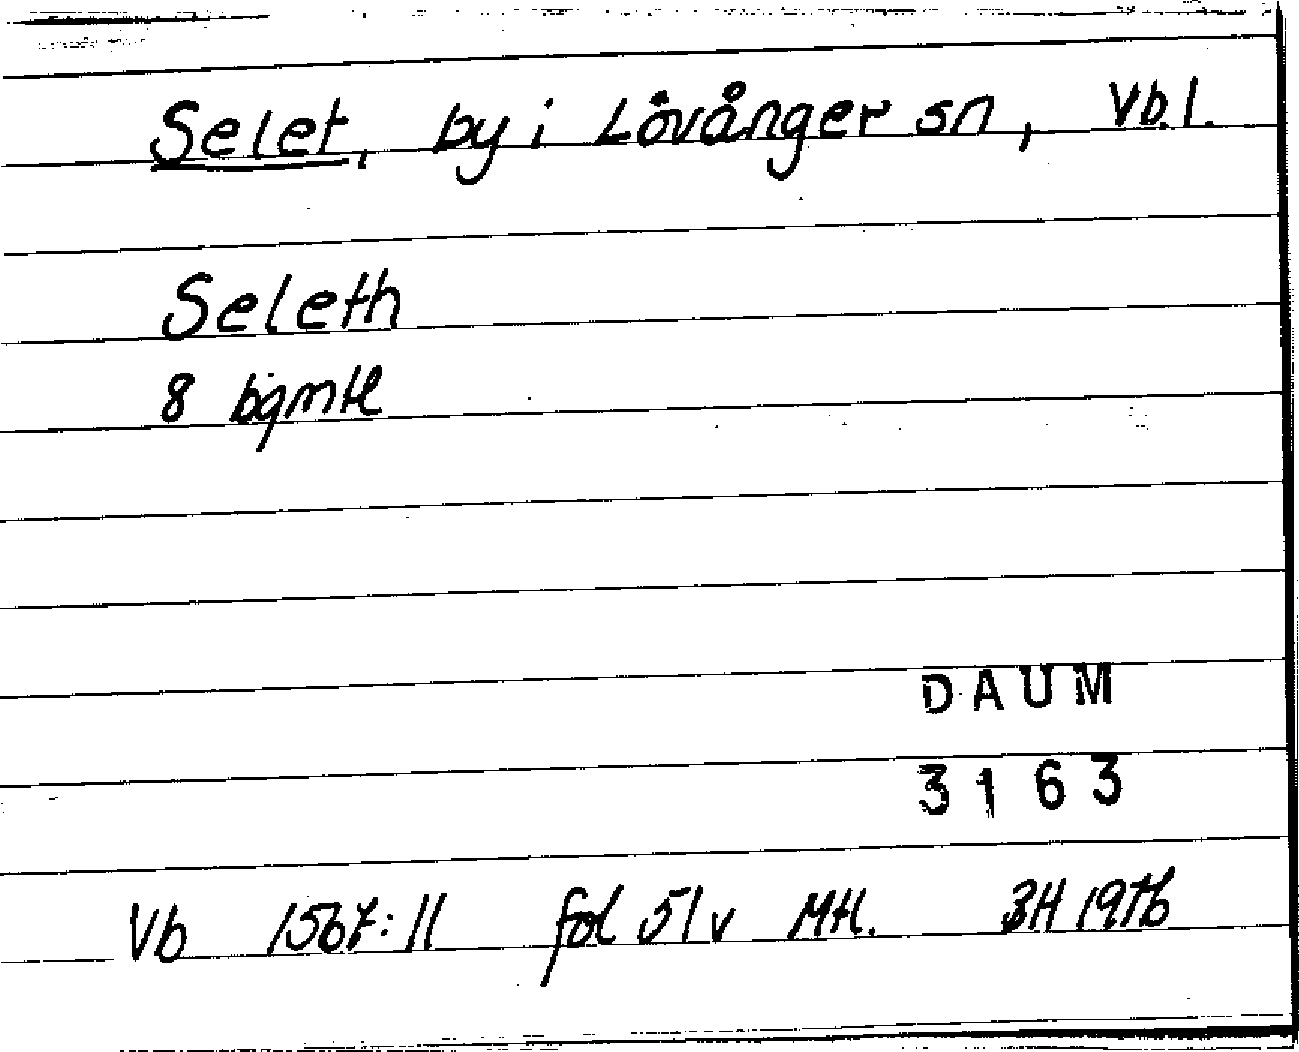 Selet, by i Lövånger sn, Vb.l.
Seleth
8 bgmtl
DAUM
3163
Vb 1567:11 fol 51v Mtl. BH 1976